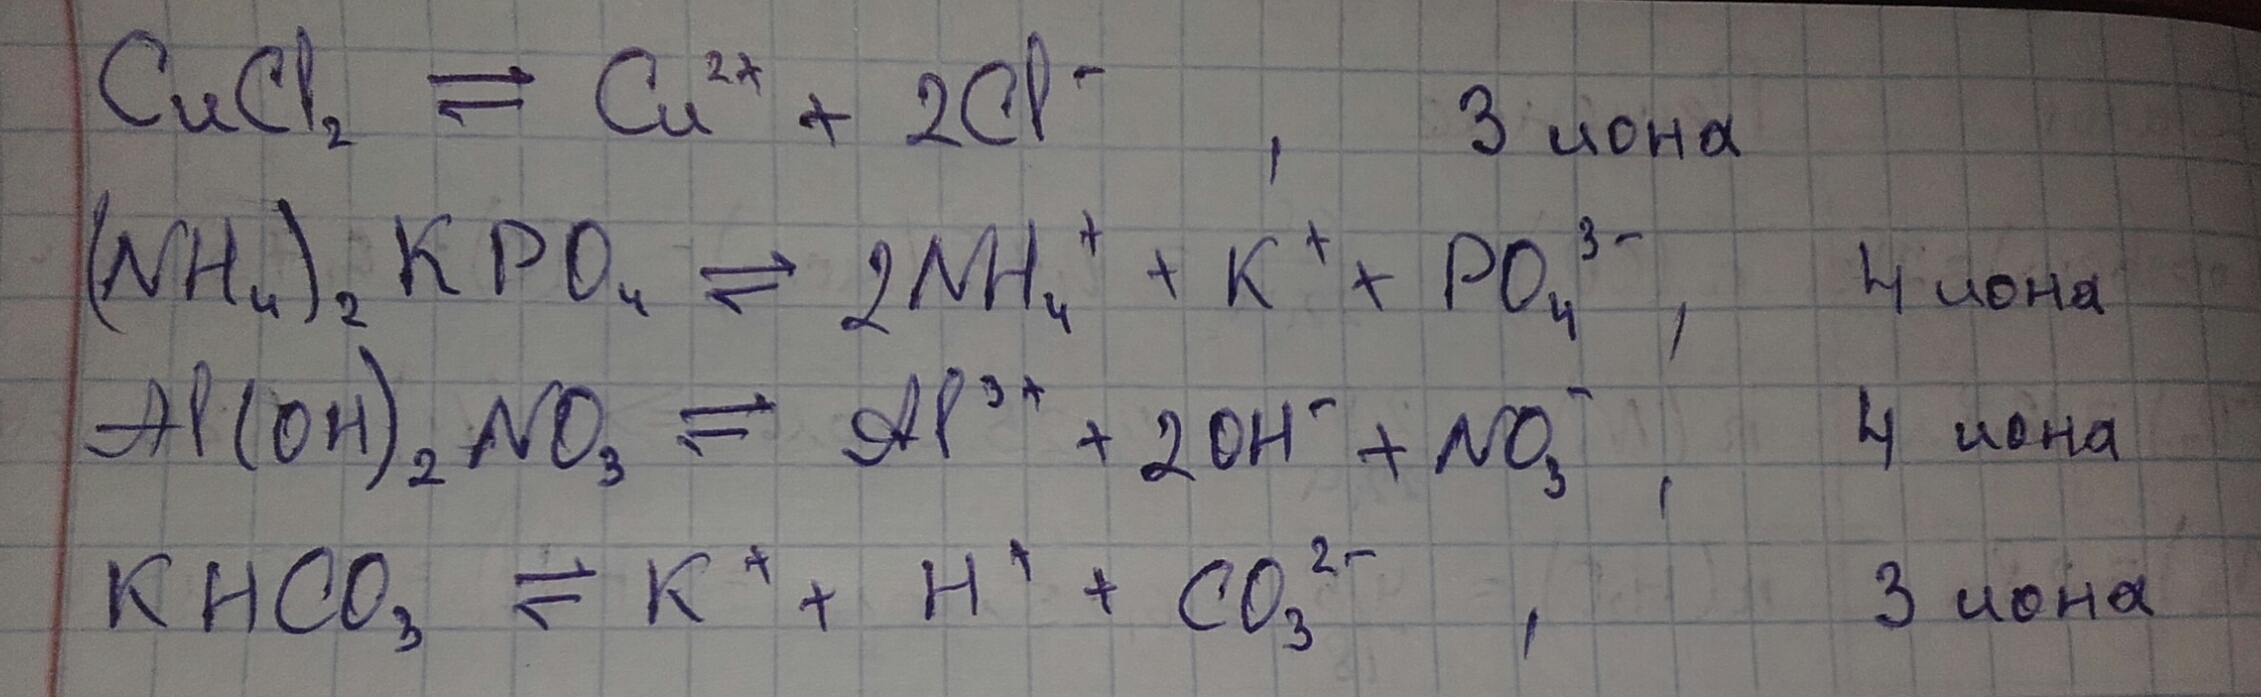 CuCl₂ ⇌ Cu²⁺ + 2Cl⁻ , 3 иона
(NH₄)₂KPO₄ ⇌ 2NH₄⁺ + K⁺ + PO₄³⁻ , 4 иона
Al(OH)₂NO₃ ⇌ Al³⁺ + 2OH⁻ + NO₃⁻ , 4 иона
KHCO₃ ⇌ K⁺ + H⁺ + CO₃²⁻ , 3 иона